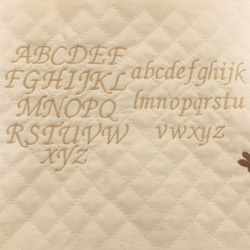 ABCDEF
FGHIJKL
MNOPQ
RSTUVW
XYZ
abcdefghijk
lmnopqrstu
vwxyz